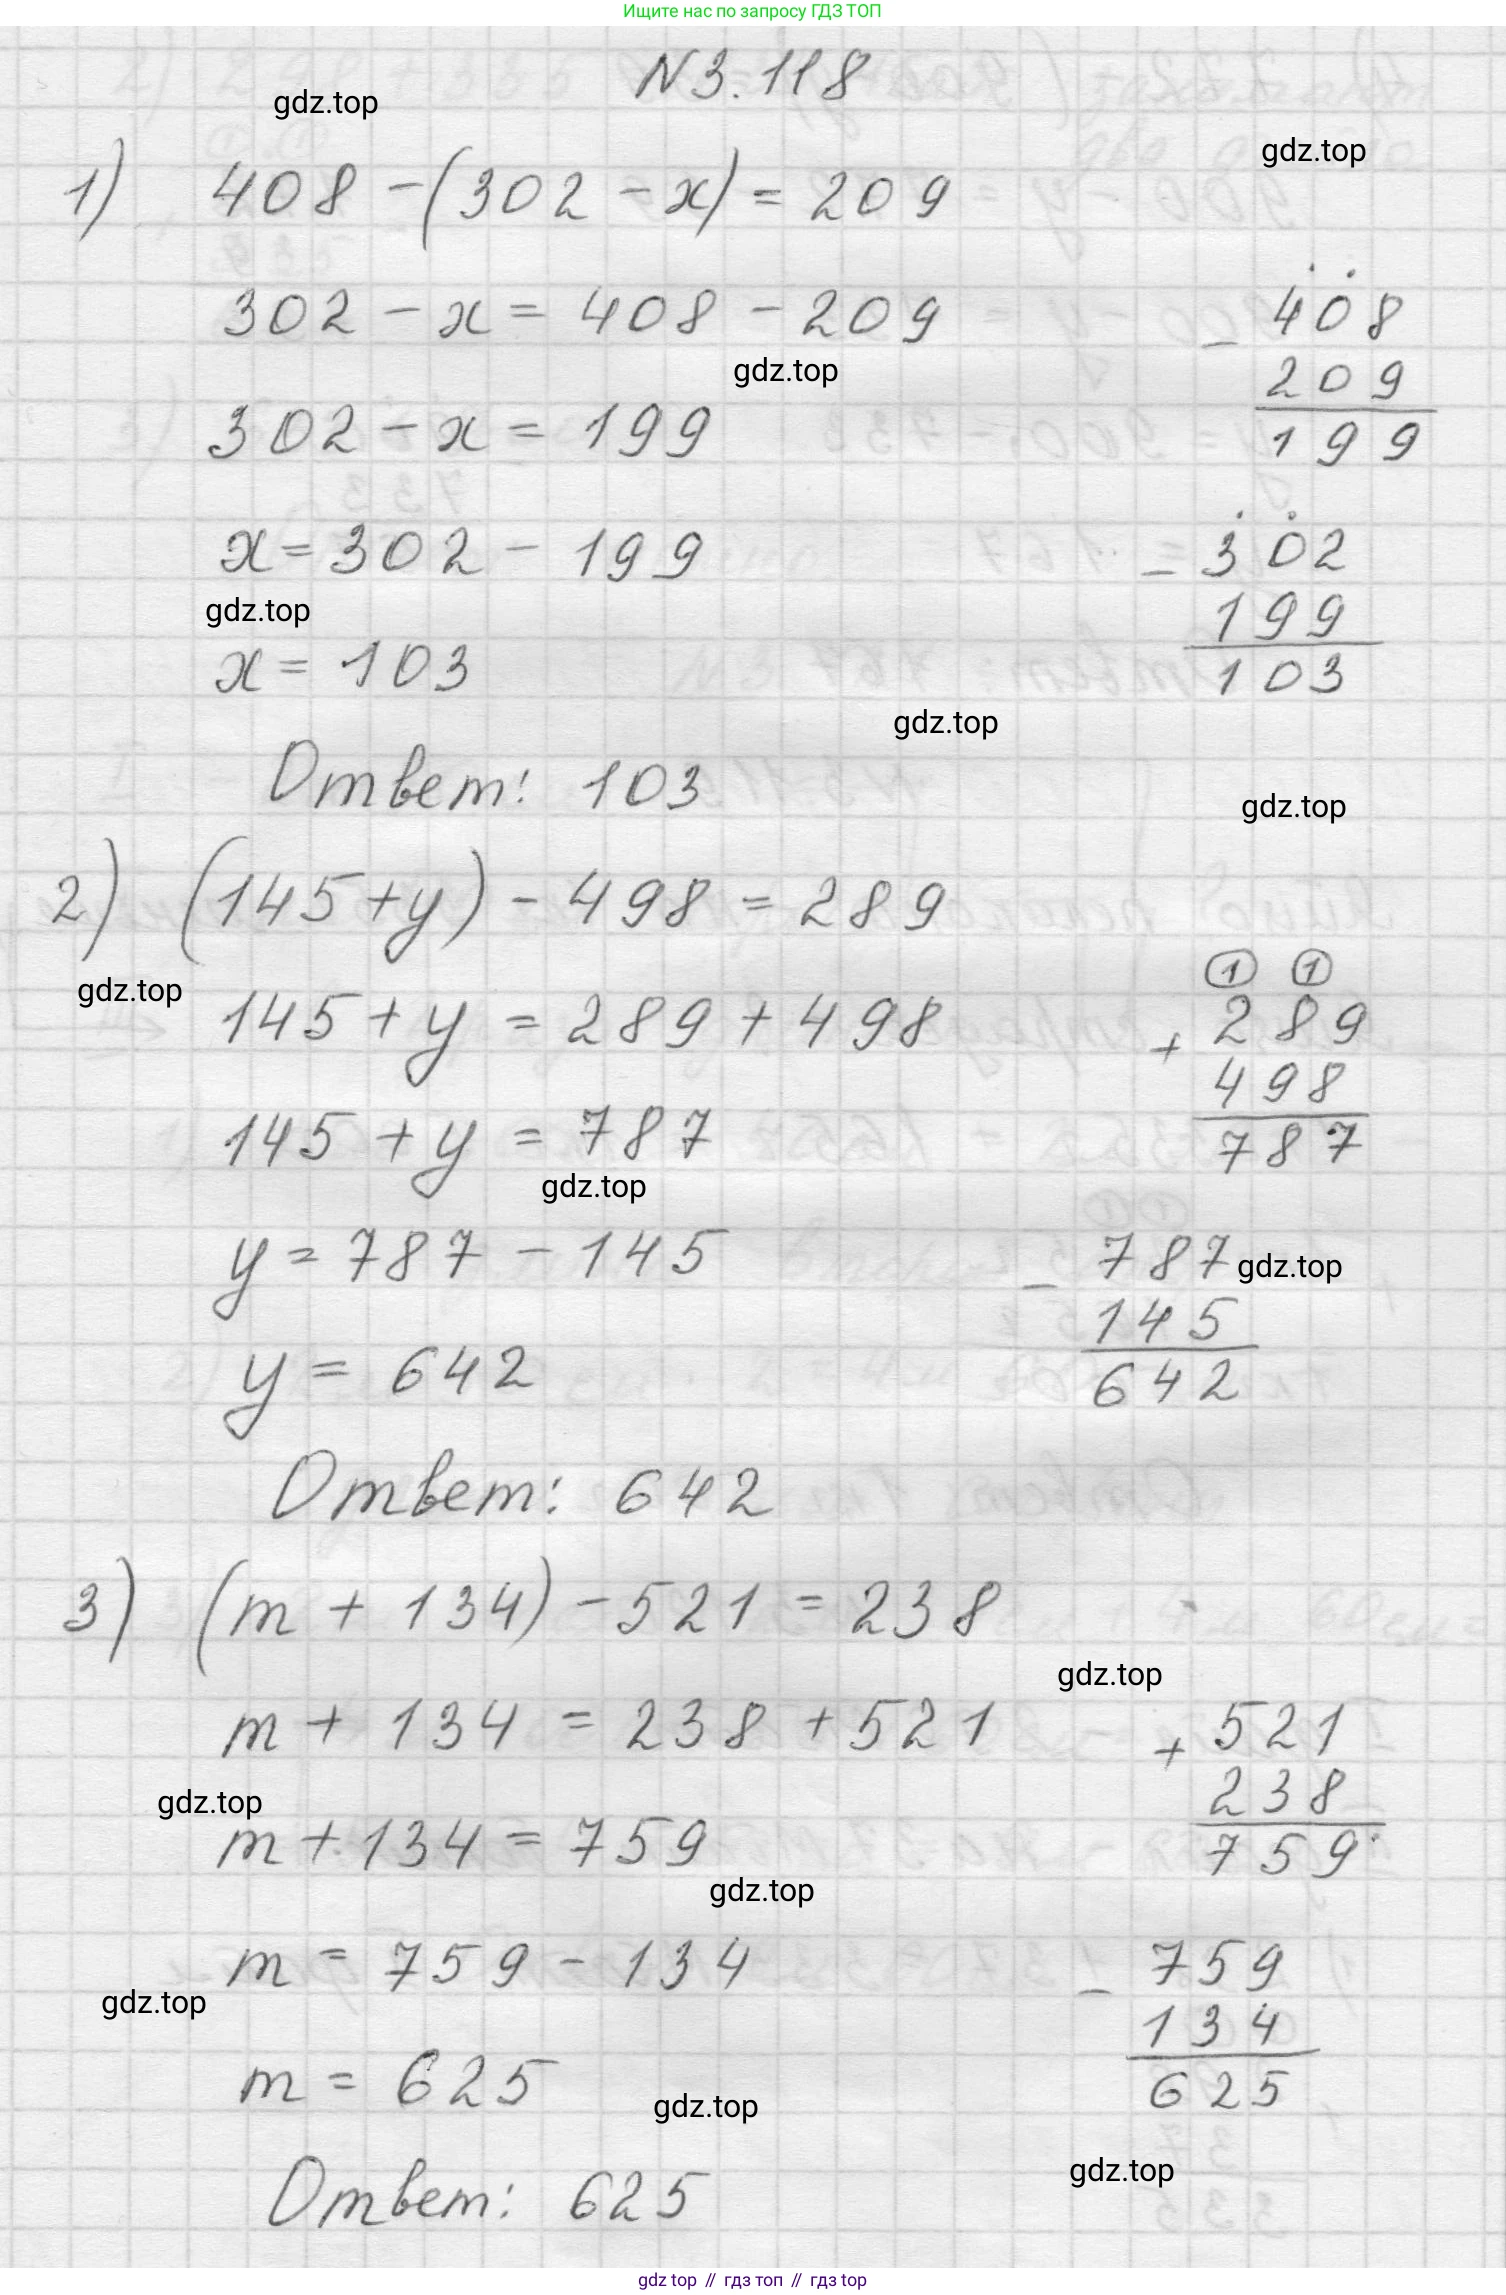 Ищите нас по запросу ГДЗ ТОП
N3.118
gdz.top
gdz.top
1) 408 - (302 - x) = 209
302 - x = 408 - 209
- 408
209
199
gdz.top
302 - x = 199
x = 302 - 199
- 302
199
103
gdz.top
x = 103
gdz.top
Ответ: 103
gdz.top
2) (145 + y) - 498 = 289
gdz.top
145 + y = 289 + 498
1 1
+ 289
498
787
145 + y = 787
gdz.top
y = 787 - 145
- 787
145
642
gdz.top
y = 642
Ответ: 642
3) (m + 134) - 521 = 238
gdz.top
m + 134 = 238 + 521
+ 521
238
759
gdz.top
m + 134 = 759
gdz.top
m = 759 - 134
- 759
134
625
gdz.top
m = 625
gdz.top
gdz.top
Ответ: 625
gdz top // гдз топ // гдз top